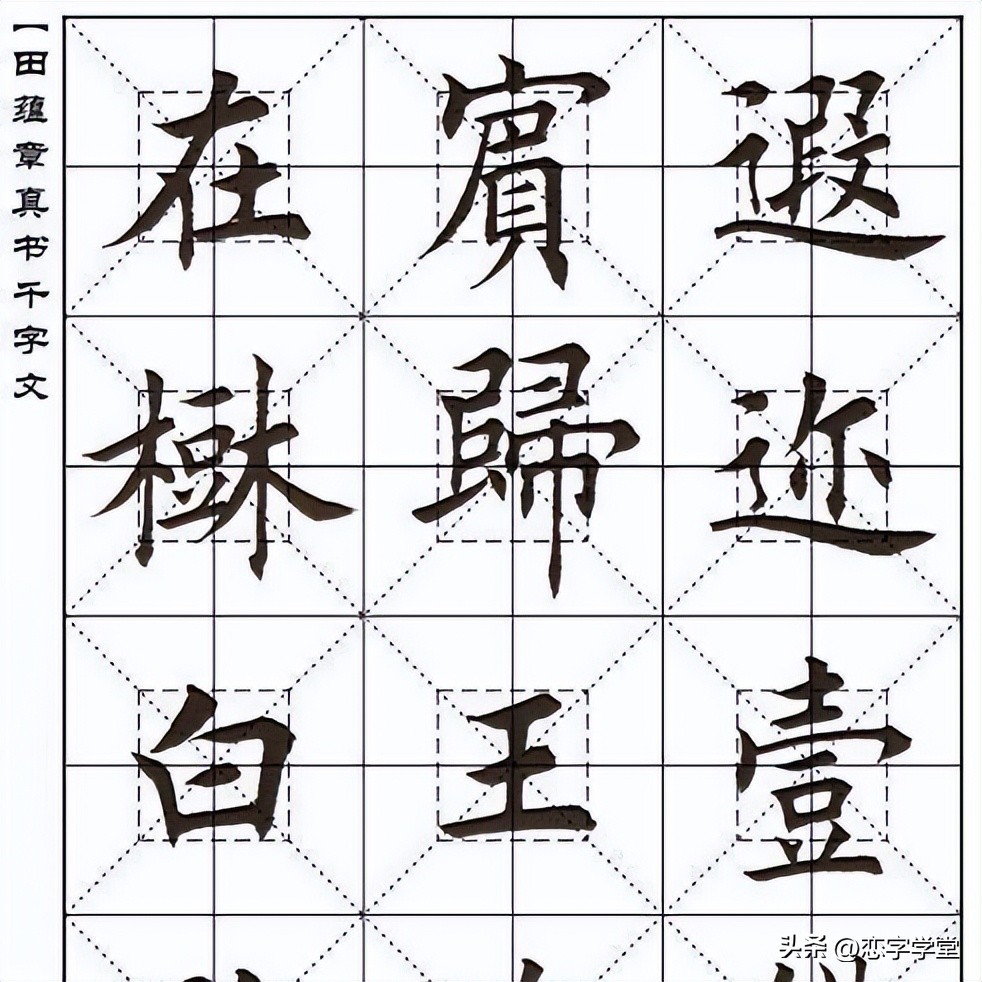 遐迩壹
賓歸王
在樹白
【田蕴章真书千字文
头条 @恋字学堂